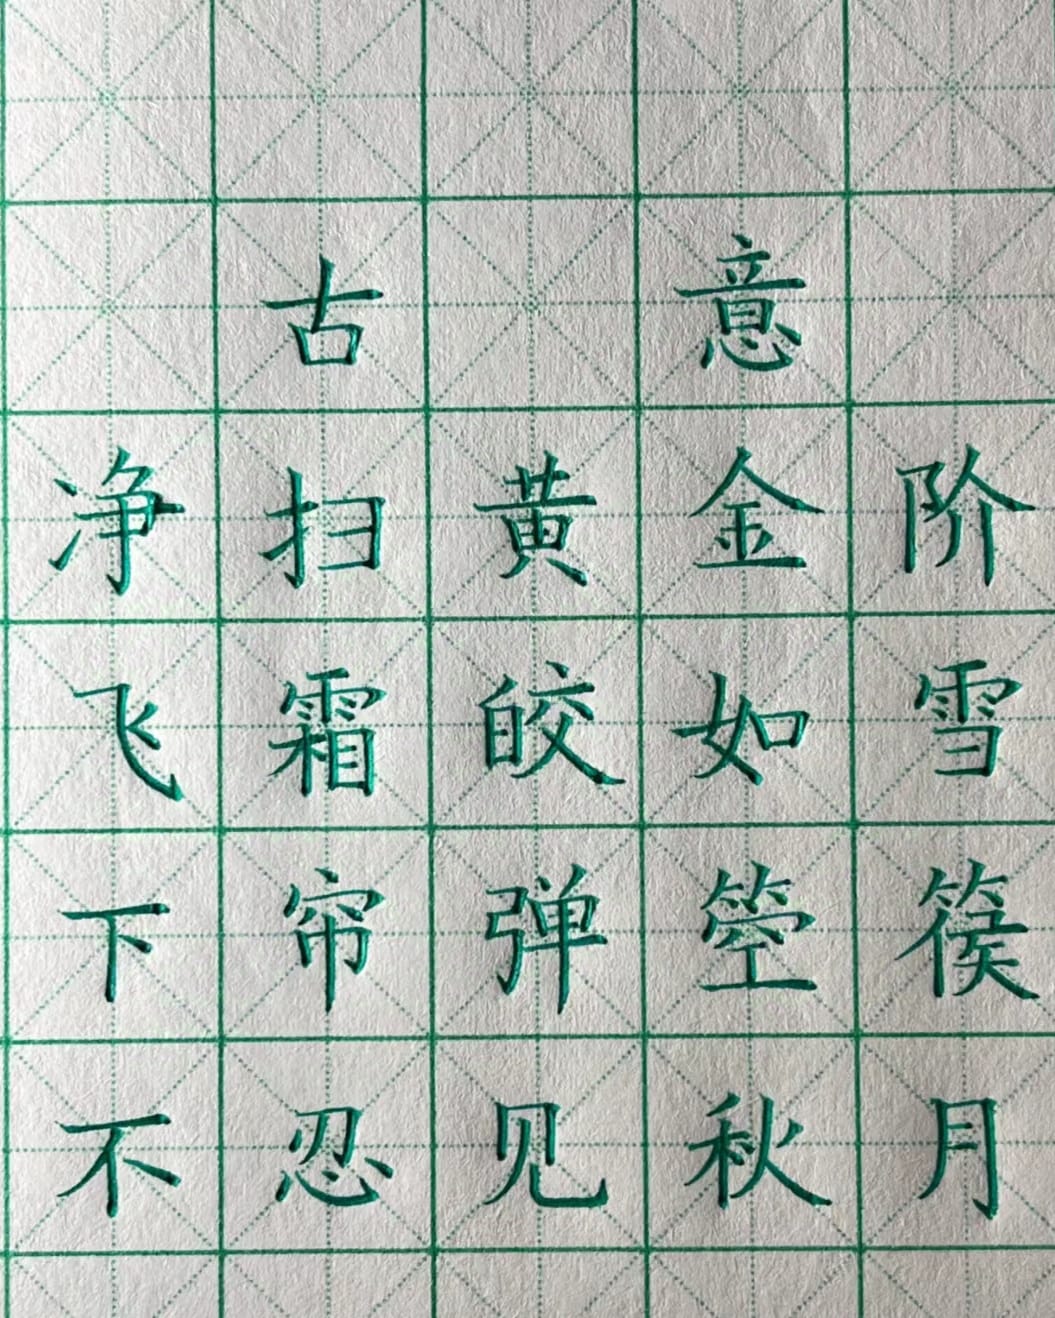 古意
净扫黄金阶
飞霜皎如雪
下帘弹箜篌
不忍见秋月